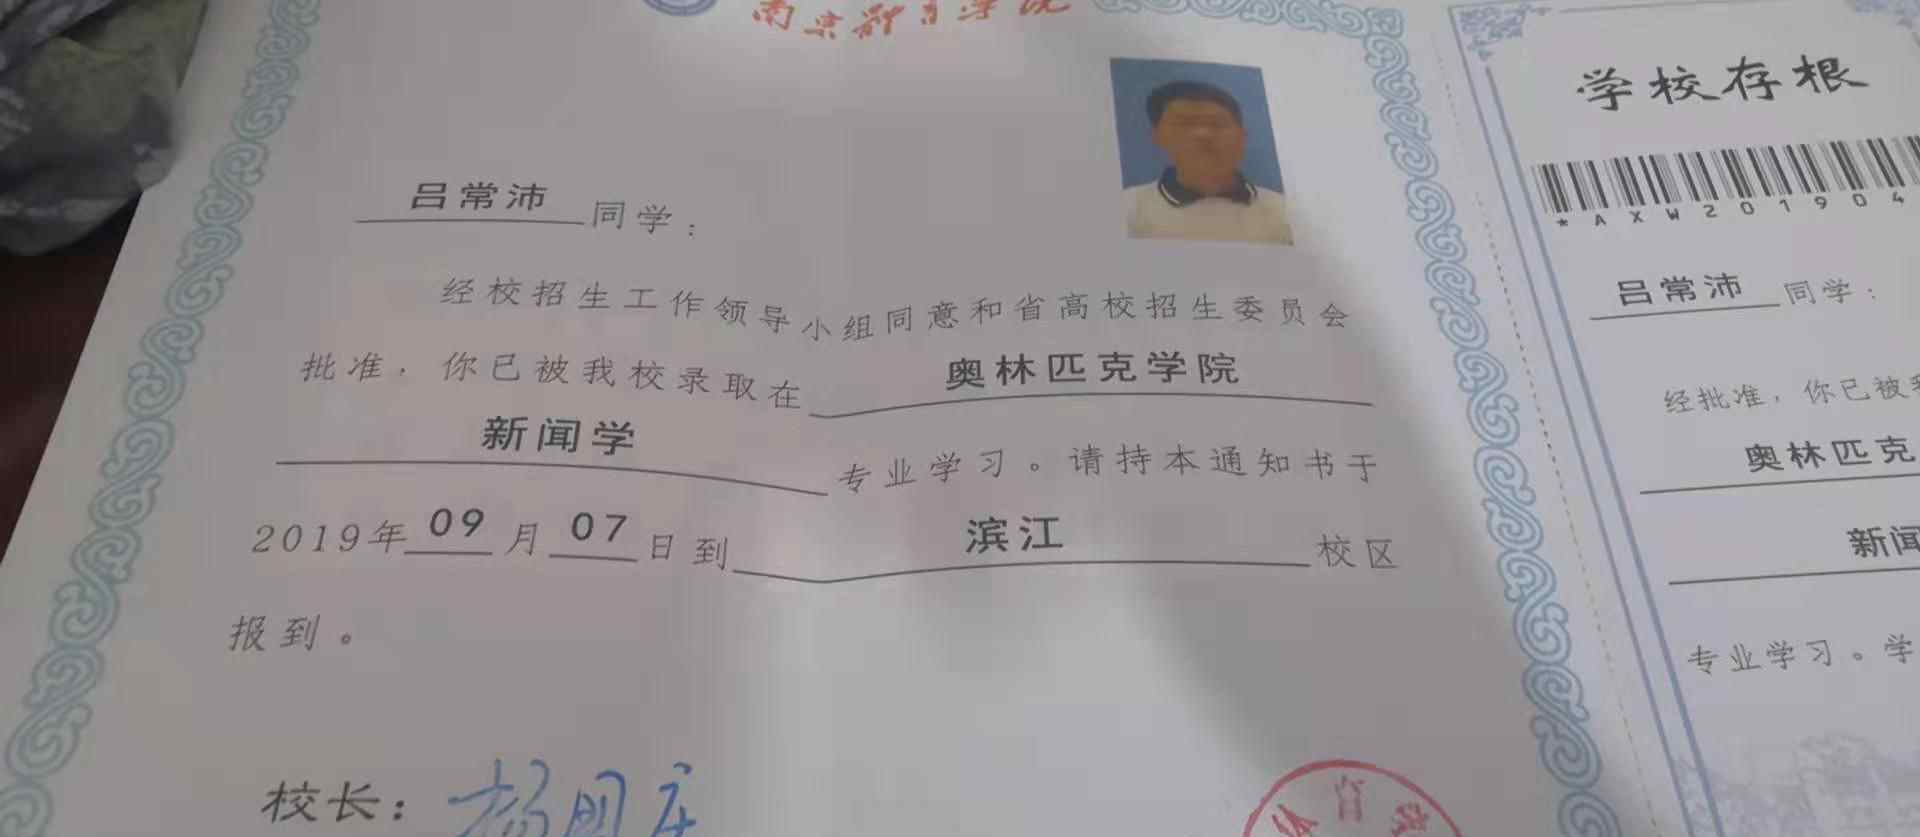 南京体育学院
吕常沛同学：
经校招生工作领导小组同意和省高校招生委员会
批准，你已被我校录取在奥林匹克学院
新闻学专业学习。请持本通知书于
2019年09月07日到滨江校区
报到。
校长：
学校存根
*AXW201904
吕常沛同学：
经批准，你已被我
奥林匹克
新闻
专业学习。学